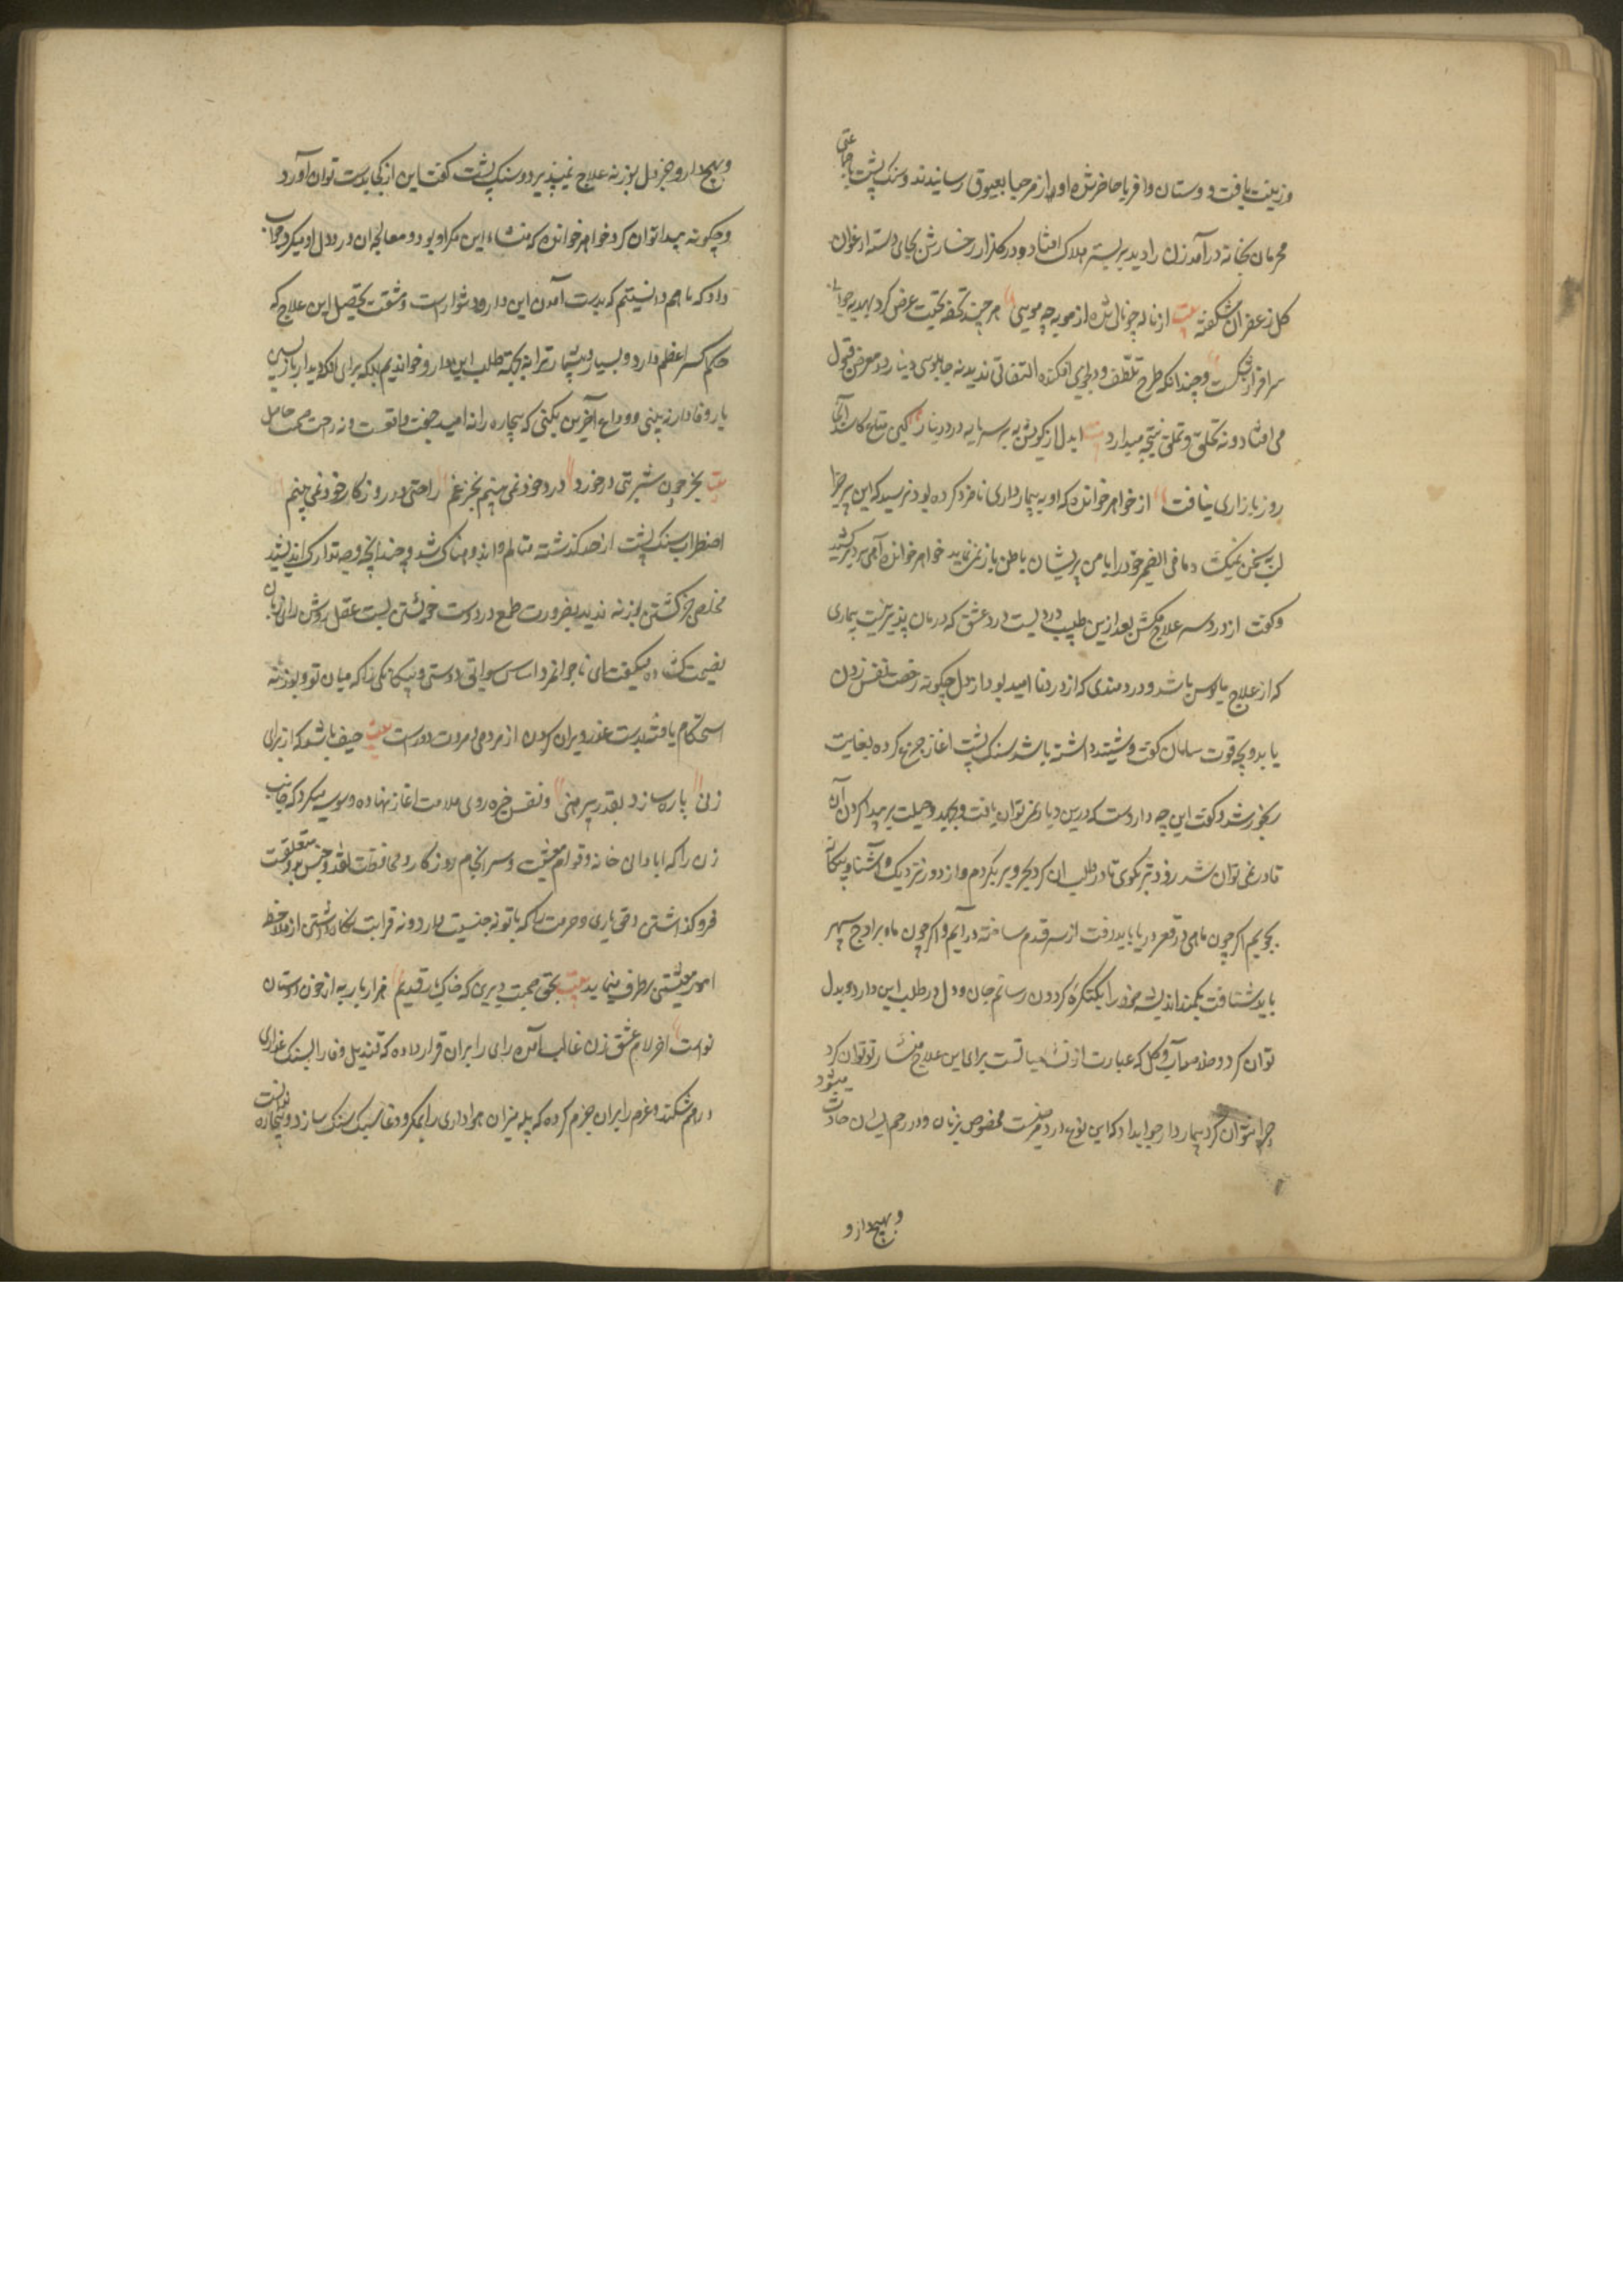 وزینت یافت و دوستان و اقربا حاضر شده آواز مرحبا بعیوق رسانیدند و سنک پشت با جماعتی
محرمان بخانه درآمد زن را دید بر بستر هلاک افتاده و در کلزار رخسارش بجای دسته ارغوان
کل زعفران شکفته بیت از ناله چو نالی شده از مویه چو مویی هر چند تحفه تحیت عرض کرد بهدیه جواب
سرافراز نکشت و چندانکه طرح تلطف و دلجویی افکنده التفاتی ندید نه چاپلوسی دینار در معرض قبول
می افتاد و نه تملق نتیجه میدارد بیت ایدل از کویش به سرمایه درد دینار کین متاع کاسد آنجا
روز بازاری نیافت از خواهر خوانده که او به بیمارداری نامزد کرده بود پرسید که این بیمار چرا
لب بسخن نمیکشاد و ما فی الضمیر خود را با من پریشان باطن باز نمی نماید خواهر خوانده آهی سرد برکشید
و کفت از دردسر علاج مکش بعد ازین طبیب دردیست درد عشق که درمان پذیر نیست بیماری
که از علاج مایوس باشد و دردمندی که از دردنا امید بود از دل چکونه رخصت نفس زدن
یابد و بچه قوت سامان کفت و شنید داشته باشد سنک پشت اغاز جزع کرده بغایت
رنجور شد و کفت این چه داروست که درین دیار نمی توان یافت و بجهد و حیلت بر پیدا کردن آن
قادر نمی توان شد زودتر بکوی تا در طلب ان کرد بحر و بر بکردم و از دور و نزدیک و آشنا و بیکانه
بجویم اکر چون ماهی در قعر دریا باید رفت از سر قدم ساخته درآیم و اکر چون ماه بر اوج سپهر
باید شتافت بکمند اندیشه خود را بکنکره کردون رسانم جان و دل در طلب این دارو بدل
توان کرد و خلاصه آب و کل که عبارت از حیاتست برای این علاج نثار تو توان کرد
چرا نتوان کرد بیماردار جواب داد که این نوع دردیست مخصوص بزنان و در رحم ایشان حادث میشود
و بهیچ دارو
و بهیچ دارو جز دل بوزنه علاج نمیپذیرد سنک پشت کفت این از کجا بدست توان آورد
و چکونه پیدا توان کرد خواهر خوانده که منشاء این مکر او بود و معالجه ان درد دل او میکرد جواب
داد که ما هم دانستیم که بدست آمدن این دارو دشوارست و مشقت تحصیل این علاج که
حکم اکسیر اعظم دارد بسیار و بیشمار ترا نه بجهة طلب این دارو خواندیم بلکه برای آنکه دیدار بازپسین
یار وفادار ببینی و وداع آخرین بکنی که بیچاره را نه امید صحت واقعست و نه راحت حاصل
بیت بجز خون شربتی درخورد درد خود نمی بینم بجز غم راحتی در روزکار خود نمی بینم
اضطراب سنک پشت از حد کذشته متالم و اندوهناک شد و چندانچه وجه تدارک اندیشید
مخلصی جز کشتن بوزنه ندید بضرورت طمع در دوست خویش بست عقل روشن رای زبان
نصیحت کشاده میکفت ای ناجوانمرد اساس دوستی و یکانکی را که میان تو و بوزنه
استحکام یافته بدست غدر ویران کردن از مردمی و مروت دورست بیت حیف باشد که از برای
زنی پاره سازد بقدر پیرهنی و نفس خیره روی ملامت اغاز نهاده وسوسه میکرد که جانب
زن را که ابادانی خانه و قوام معیشت و سرانجام روزکار و محافظت نقد و جنس بدو متعلقست
فروکذاشتن و حق یاری و حرمت را که با تو نه جنسیت دارد و نه قرابت نکاه داشتن از ملاحظه
امور معیشتی برطرف مینماید بیت بحق صحبت دیرین که خاک یار قدیم هزار بار به از خون دوستان
نواست اخر الامر عشق زن غالب آمده رای را بران قرار داده که قندیل وفا را بسنک غداری
درهم شکند و عزم را بران جزم کرده که پله میزان هواداری را بمکر و دغا سبک سنک سازد و بیچاره ندانست